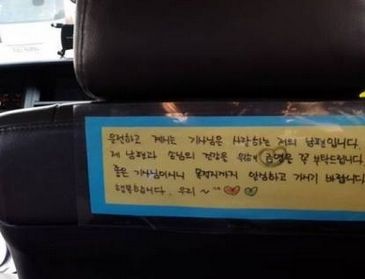 운전하고 계시는 기사님은 사랑하는 저의 남편입니다.
제 남편과 손님의 건강을 위해 금연을 꼭 부탁드립니다.
좋은 기사님이시니 목적지까지 안심하고 가시기 바랍니다
행복합니다. 우리 ~ ^^ ♡ ♡